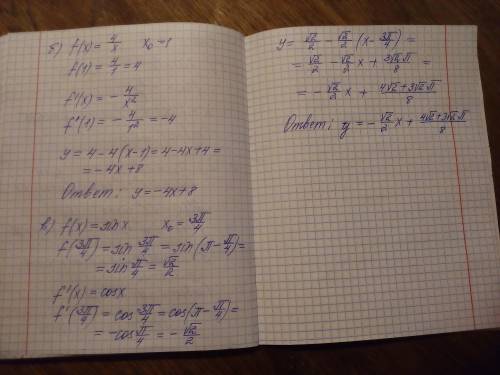 б) f(x) = 4/x    x₀ = 1
f(1) = 4/1 = 4
f'(x) = - 4/x²
f'(1) = - 4/1² = -4
y = 4 - 4(x-1) = 4 - 4x + 4 =
= -4x + 8
Ответ: y = -4x + 8
в) f(x) = sin x    x₀ = 3π/4
f(3π/4) = sin 3π/4 = sin(π - π/4) =
= sin π/4 = √2/2
f'(x) = cos x
f'(3π/4) = cos 3π/4 = cos(π - π/4) =
= -cos π/4 = - √2/2
y = √2/2 - √2/2 (x - 3π/4) =
= √2/2 - √2/2 x + 3√2π/8 =
= - √2/2 x + (4√2 + 3√2π)/8
Ответ: y = - √2/2 x + (4√2 + 3√2π)/8